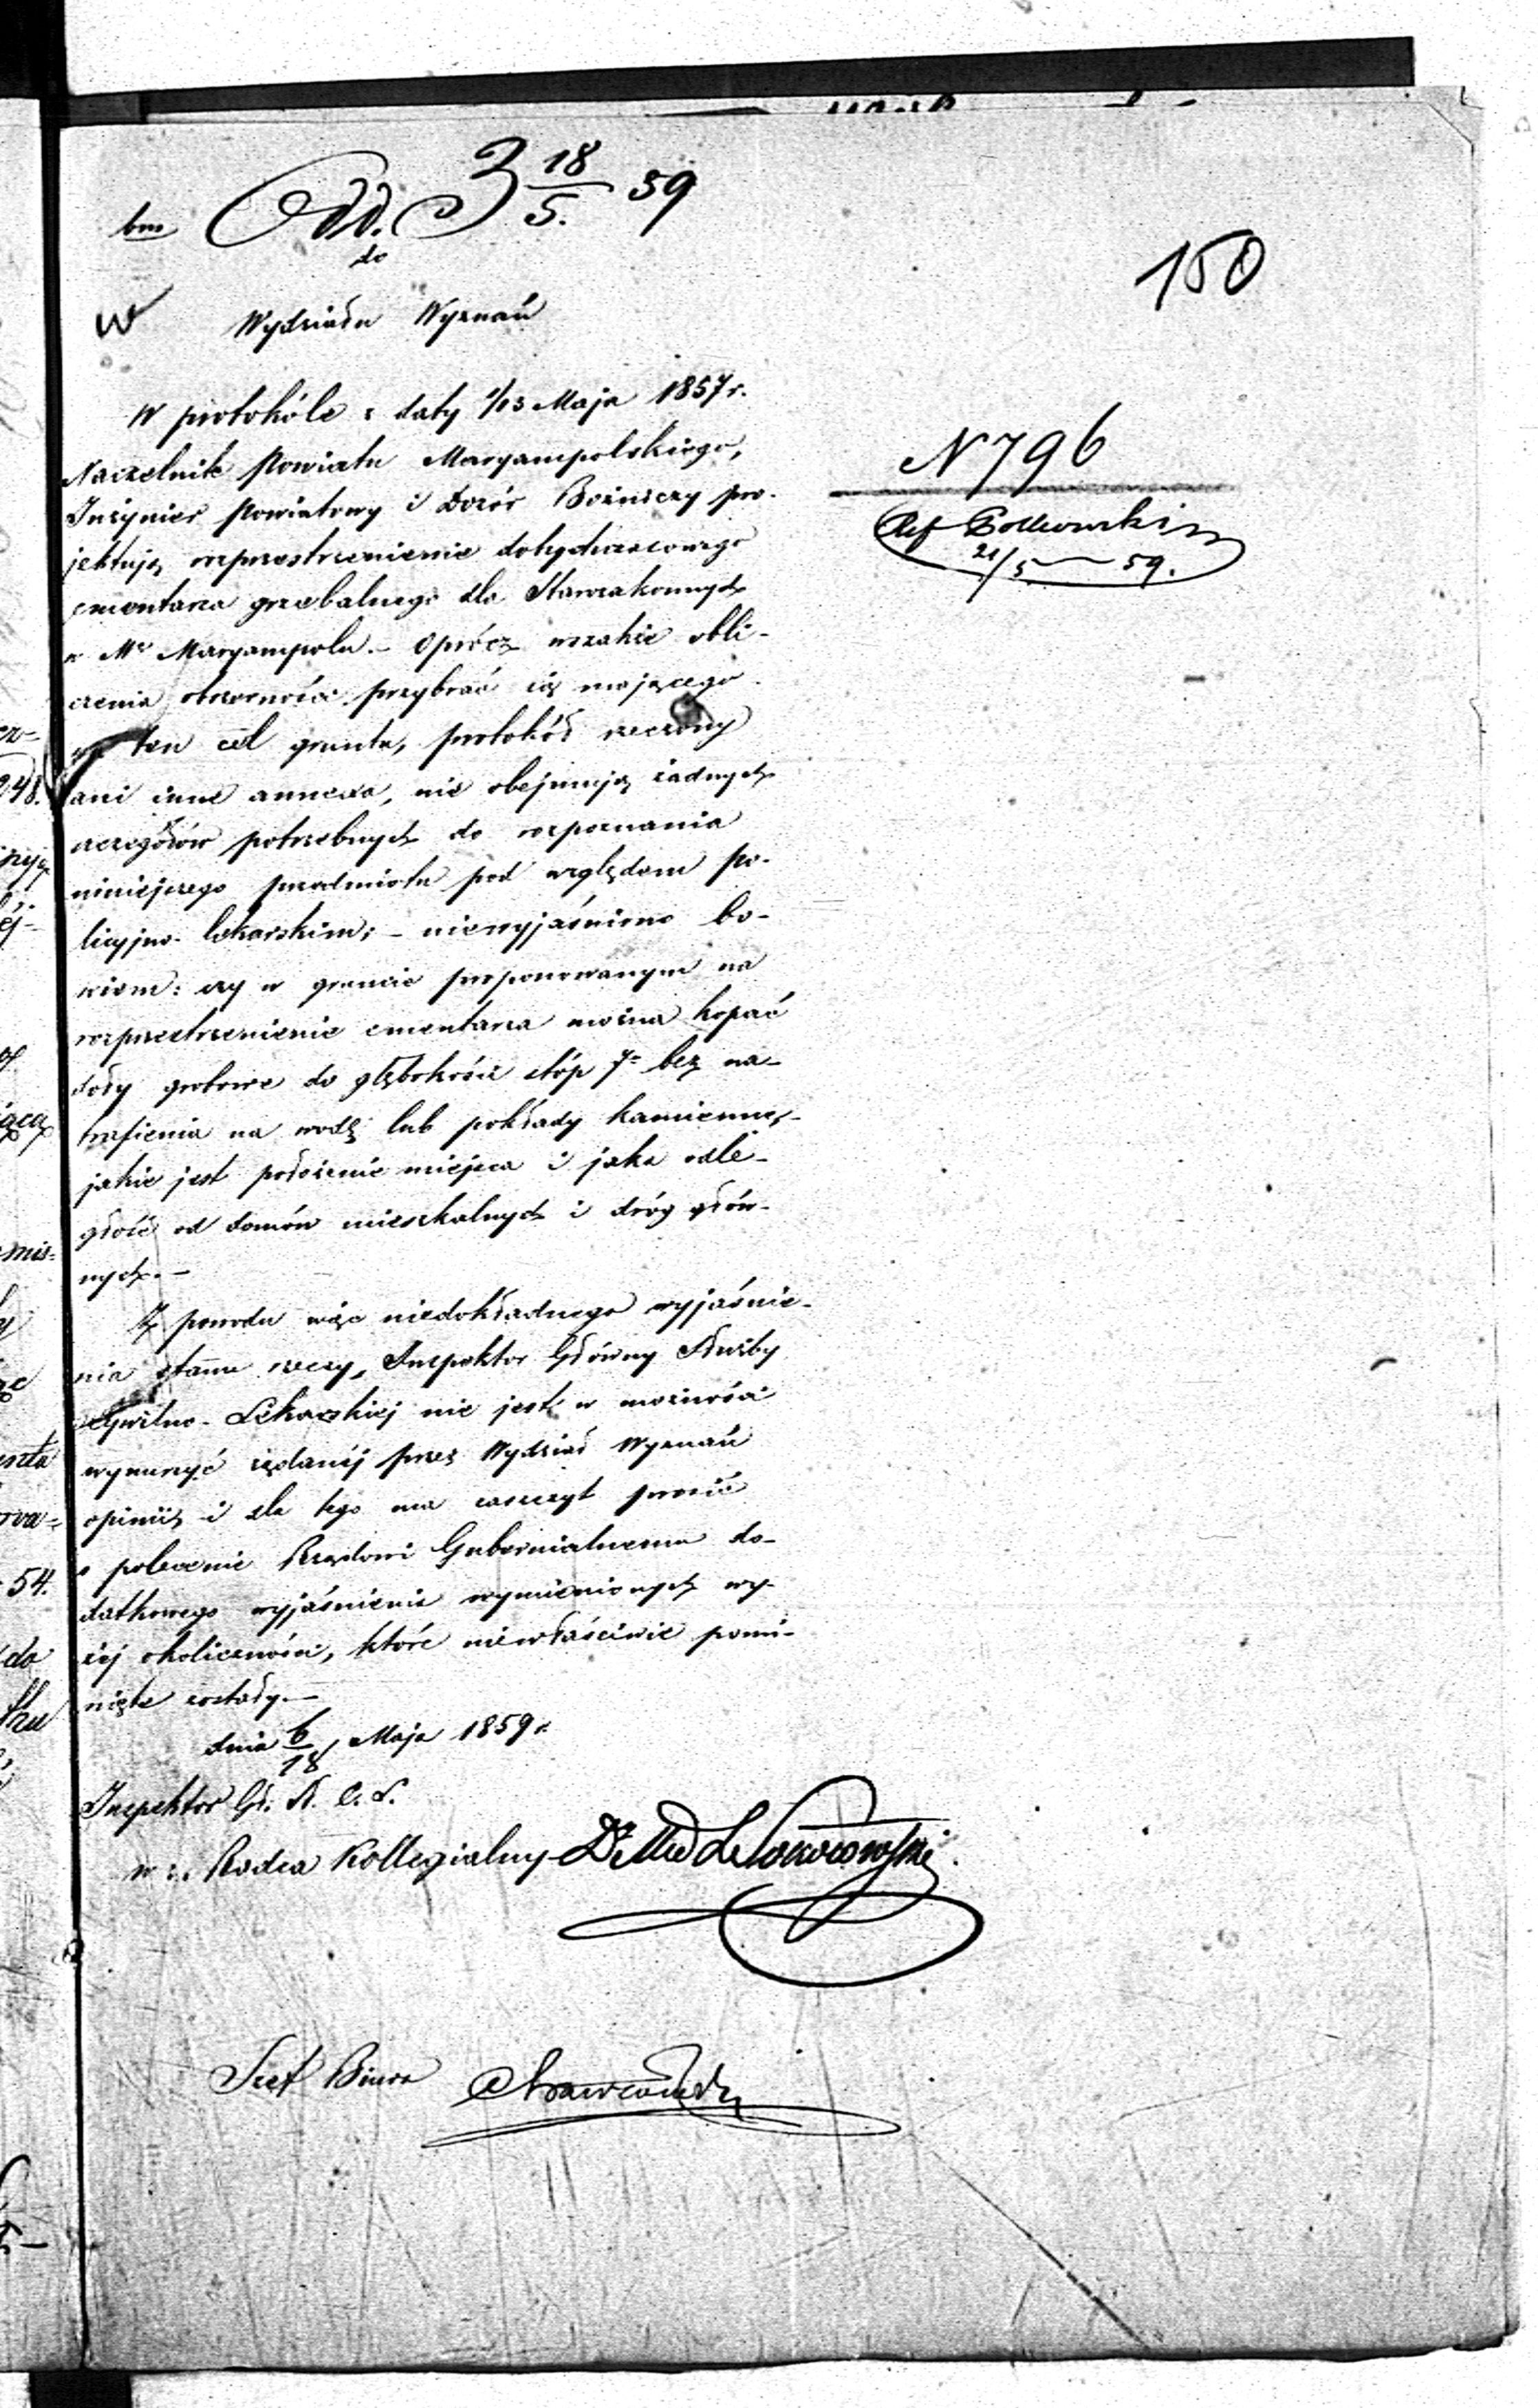 bm Odd. 3 18/5. 59
do
W Wydziału Wyznań
150
W protokóle z daty 1/13 Maja 1857 r.
Naczelnik Powiatu Maryampolskiego,
Inżynier Powiatowy i Dozór Bożniczy pro-
jektują rozprzestrzenienie dotychczasowego
cmentarza grzebalnego dla Starozakonnych
w Mie Maryampolu. – Oprócz wszakże obli-
czenia obszerności przybrać się mającego
na ten cel gruntu, protokół rzeczony
ani inne annexa, nie obejmują żadnych
szczegółów potrzebnych do rozpoznania
niniejszego przedmiotu pod względem po-
licyjno-lekarskim; – niewyjaśniono bo-
wiem: czy w gruncie proponowanym na
rozprzestrzenienie cmentarza można kopać
doły grobowe do głębokości stóp 7 bez na-
trafienia na wodę lub pokłady kamienne,
jakie jest położenie miejsca i jaka odle-
głość od domów mieszkalnych i dróg głów-
nych. –
Z powodu więc niedokładnego wyjaśnie-
nia stanu rzeczy, Inspektor Główny Służby
Cywilno-Lekarskiej nie jest w możności
wynurzyć żądanéj przez Wydział Wyznań
opinii, i dla tego ma zaszczyt prosić
o polecenie Rządowi Gubernialnemu do-
datkowego wyjaśnienia wymienionych wy-
żéj okoliczności, które niewłaściwie pomi-
nięte zostały. –
dnia 6/18 Maja 1859 r.
Inspektor Gł. S. C. L.
w z. Radca Kollegialny Dr Med L.
Szef Biura
N 796
Ref
21/5 – 59.